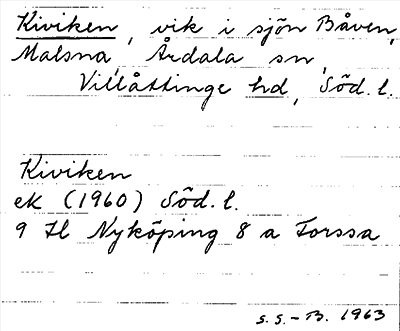 Kiviken, vik i sjön Båven,
Malsna, Årdala sn,
Villåttinge hd, Söd. l.
Kiviken
ek (1960) Söd. l.
9 H Nyköping 8 a Forssa
S. S. - B. 1963